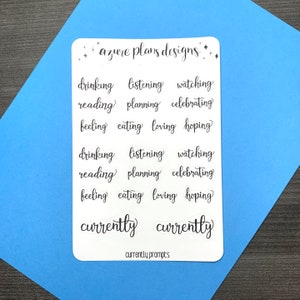 azure plans designs
drinking listening watching
reading planning celebrating
feeling eating loving hoping
drinking listening watching
reading planning celebrating
feeling eating loving hoping
currently currently
currently prompts